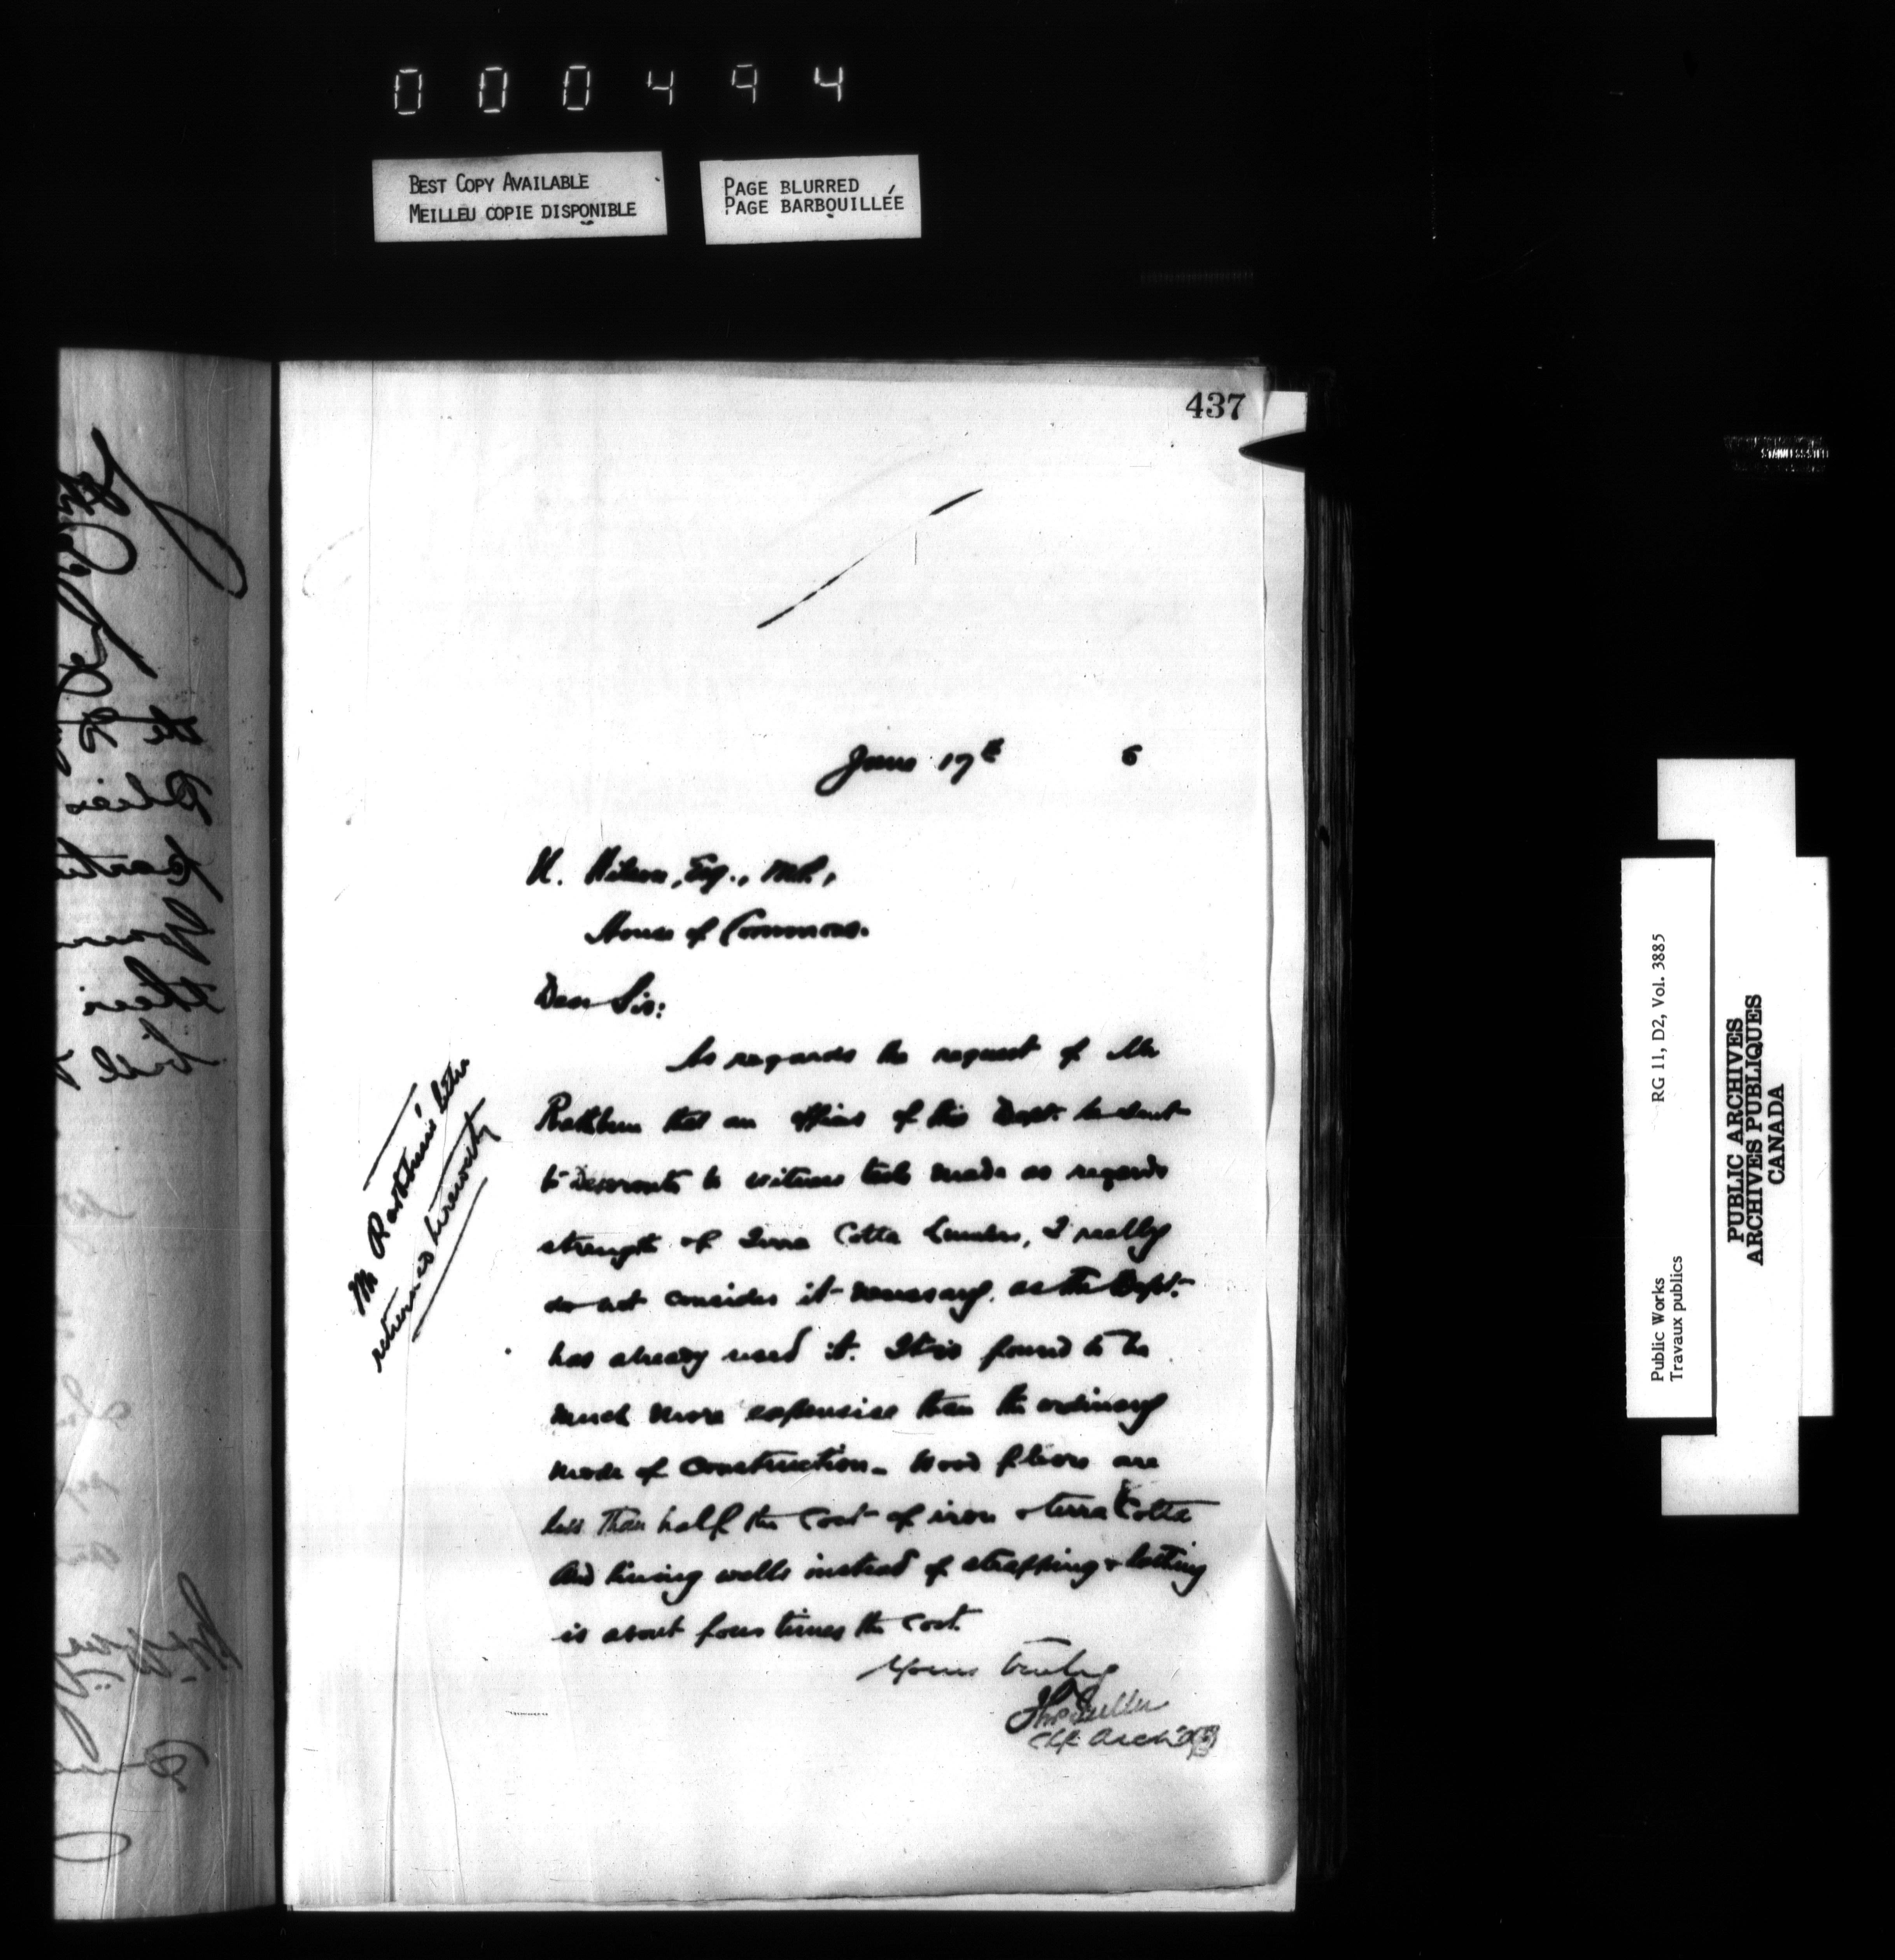 000494
BEST COPY AVAILABLE
MEILLEU COPIE DISPONIBLE
PAGE BLURRED
PAGE BARBOUILLÉE
437
June 17th 6
U. Wilson, Esq., M.P.,
House of Commons.
Dear Sir:
As regards the request of Mr
Rathbun that an officer of this Dept. be sent
to Deseronto to witness tests made as regards
strength of Terra Cotta Lumber, I really
do not consider it necessary, as the Dept.
has already used it. It is found to be
much more expensive than the ordinary
mode of construction. Wood floors are
less than half the cost of iron & terra Cotta
and lining walls instead of strapping & lathing
is about four times the cost.
Yours truly
Thos Fuller
Chf. Arch't
Mr Rathbun's letter
returned herewith
Public Works
Travaux publics
RG 11, D2, Vol. 3885
PUBLIC ARCHIVES
ARCHIVES PUBLIQUES
CANADA